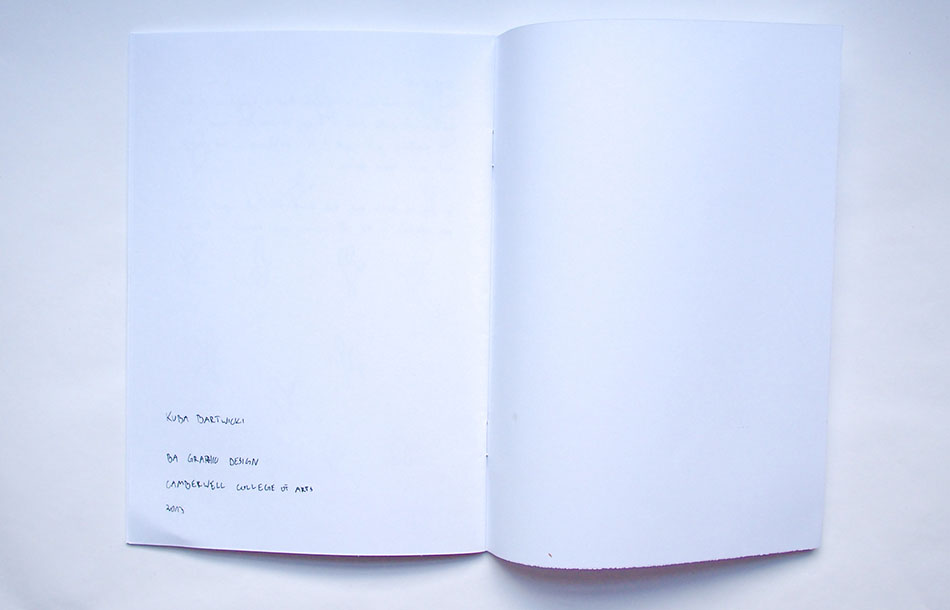 KUBA BARTWICKI
BA GRAPHIC DESIGN
CAMBERWELL COLLEGE OF ARTS
2013